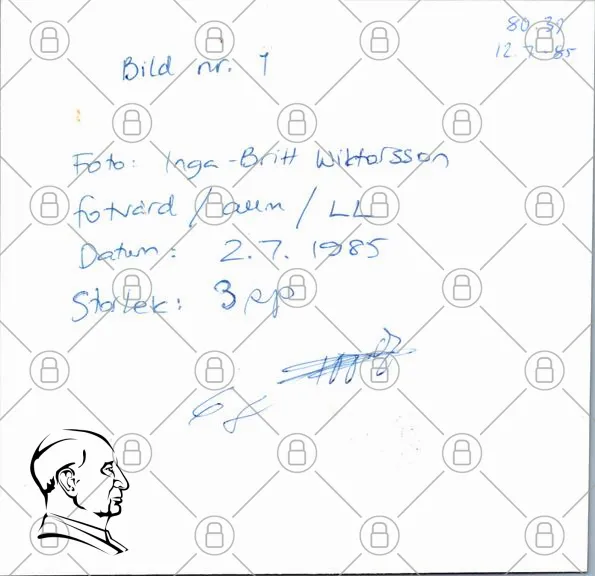 80
12.7-85
Bild nr. 1
Foto: Inga-Britt Wiktorsson
fotvård / / LL
Datum: 2.7.1985
Storlek: 3 sp